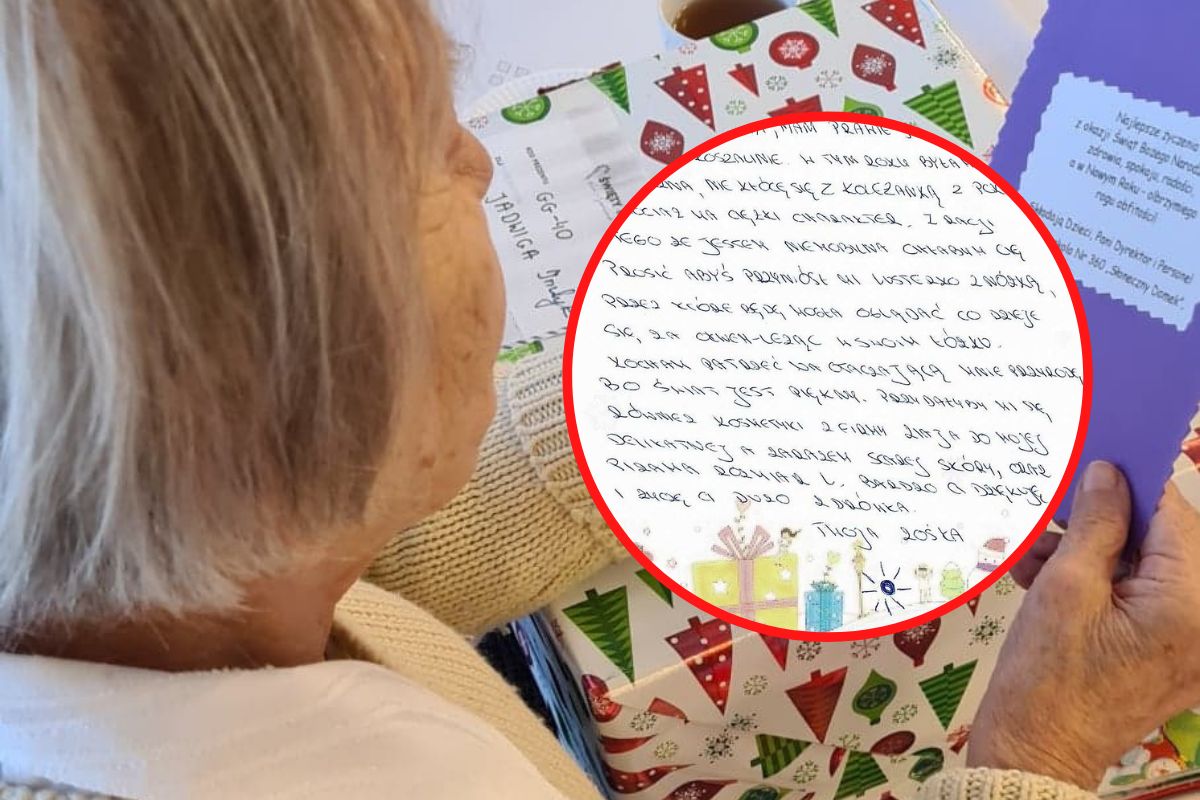 ŚWIĘTY
GG-40
JADWIGA
MAM PRAWIE
KOSZALINIE. W TYM ROKU BYŁA
NIE KŁÓCĘ SIĘ Z KOLEŻANKĄ Z
MA CIĘŻKI CHARAKTER. Z RACJI
TEGO ŻE JESTEM NIEMOBILNA CIĘ
PROSIĆ ABYŚ PRZYNIÓSŁ MI LUSTERKO Z NÓŻKĄ,
PRZEZ KTÓRE BĘDĘ MOGŁA OGLĄDAĆ CO DZIEJE
SIĘ, ZA OKNEM-LEŻĄC W SWOIM ŁÓŻKU.
KOCHAM PATRZEĆ NA OTACZAJĄCĄ MNIE PRZYRODĘ,
BO ŚWIAT JEST PIĘKNY. PRZYDAŁYBY MI SIĘ,
RÓWNIEŻ KOSMETYKI Z FIRMY ZIAJA DO MOJEJ
DELIKATNEJ A ZARAZEM STAREJ SKÓRY, ORAZ
PIŻAMA ROZMIAR L. BARDZO CI DZIĘKUJĘ
I ŻYCZĘ CI DUŻO ZDRÓWKA.
TWOJA ZOŚKA
Najlepsze życzenia
z okazji Świąt Bożego Narodz
zdrowia, spokoju, radości
a w Nowym Roku - olbrzymiego
rogu obfitości
Składają Dzieci, Pani Dyrektor i Personel
Nr 360 „Słoneczny Domek”.